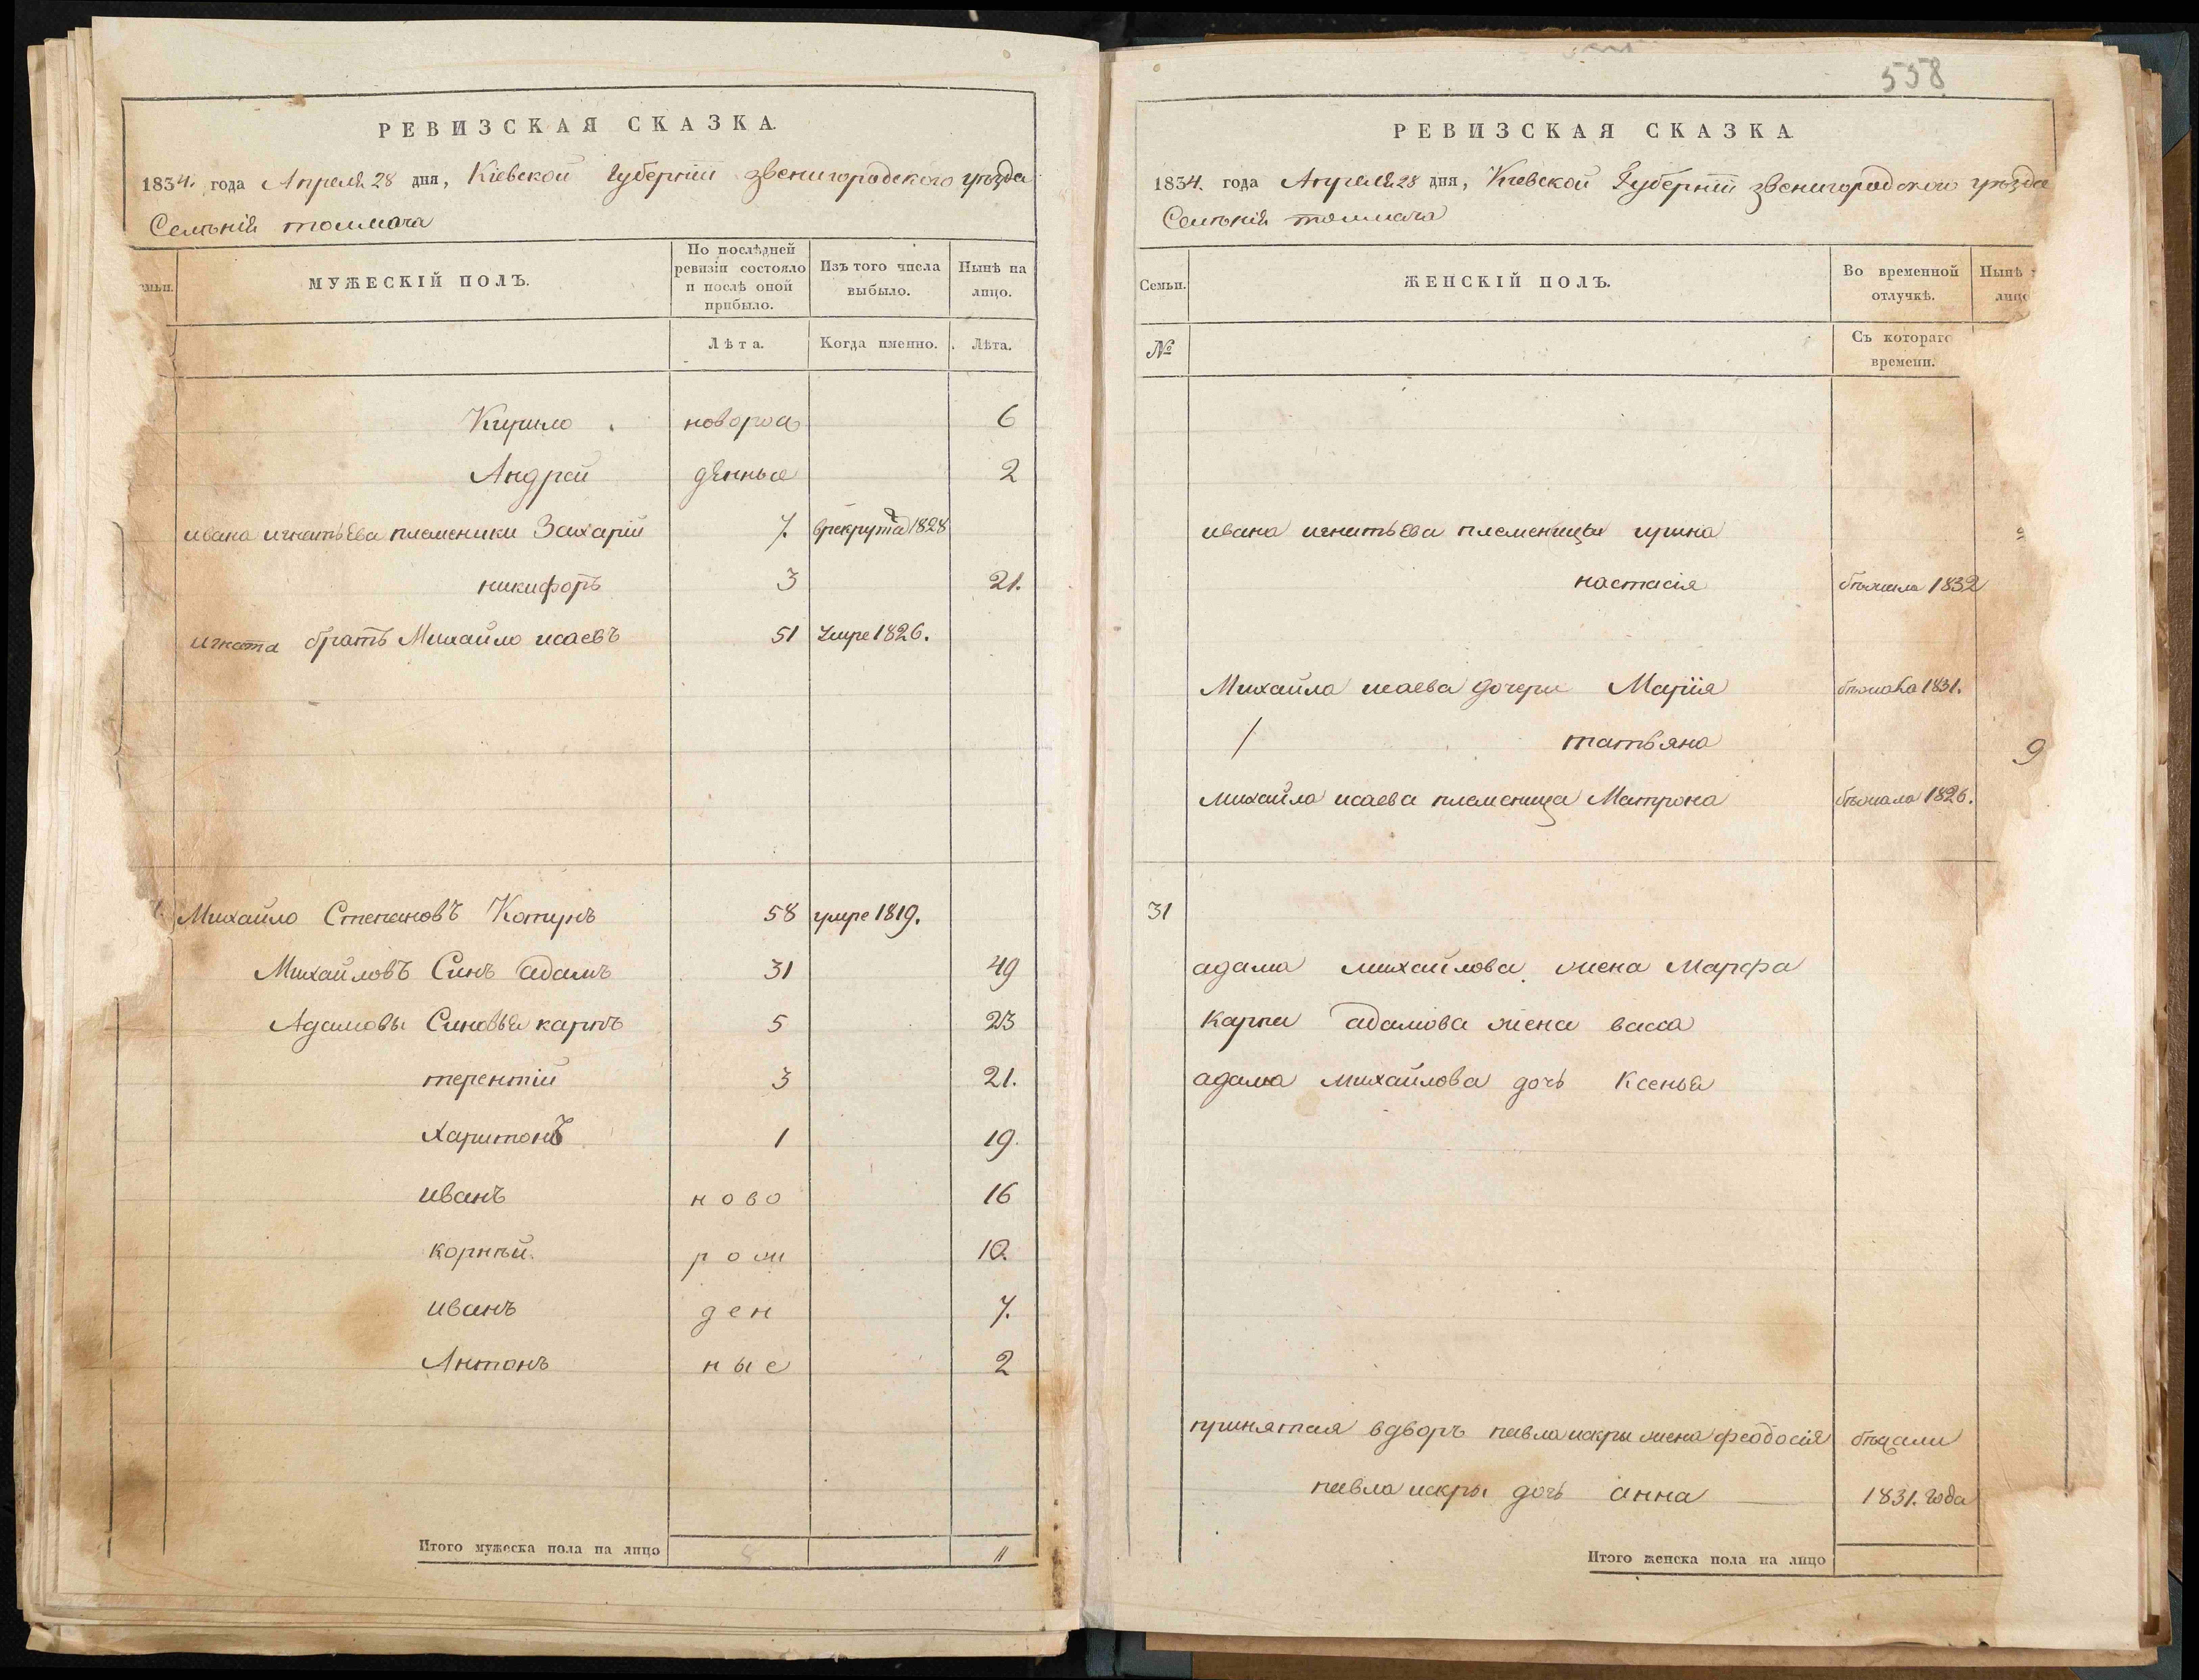 РЕВИЗСКАЯ СКАЗКА.
1834. года Апреля 28 дня, Кіевской Губерніи звенигородского уѣзда
Селѣнія толмача
МУЖЕСКІЙ ПОЛЪ. По послѣдней ревизіи состояло и послѣ оной прибыло. Изъ того числа выбыло. Нынѣ на лицо.
Лѣта. Когда именно. Лѣта.
Кирило новорож 6
Андрей денные 2
ивана игнатьева племеники Захарій 7. врекрута 1828
никифоръ 3 21.
игната братъ Михайло исаевъ 51 Умре 1826.
Михайло Степановъ Котунъ 58 умре 1819.
Михайловъ Синъ адамъ 31 49
Адамовы Синовья карпъ 5 23
терентій 3 21.
Харитонъ 1 19.
иванъ ново 16
корнѣй рож 10.
иванъ ден 7.
Антонъ ные 2
Итого мужеска пола на лицо 8 11
558
РЕВИЗСКАЯ СКАЗКА
1834. года Апреля 28 дня, Кіевской Губерніи звенигородского уѣзда
Селѣнія толмача
Семьи. ЖЕНСКІЙ ПОЛЪ. Во временной отлучкѣ. Нынѣ
№ Съ котораго времени.
ивана игнатьева племеницы ирина
настасія бѣжала 1832
Михайла исаева дочери Марія бѣжала 1831.
татьяна 9
михайла исаева племеница Матрона бѣжала 1826.
31
адама михайлова жена Марфа
Карпа адамова жена васса
адама михайлова дочь Ксенья
принятая вдворъ павла искры жена феодосія бѣжали
павла искры дочь анна 1831. года
Итого женска пола на лицо